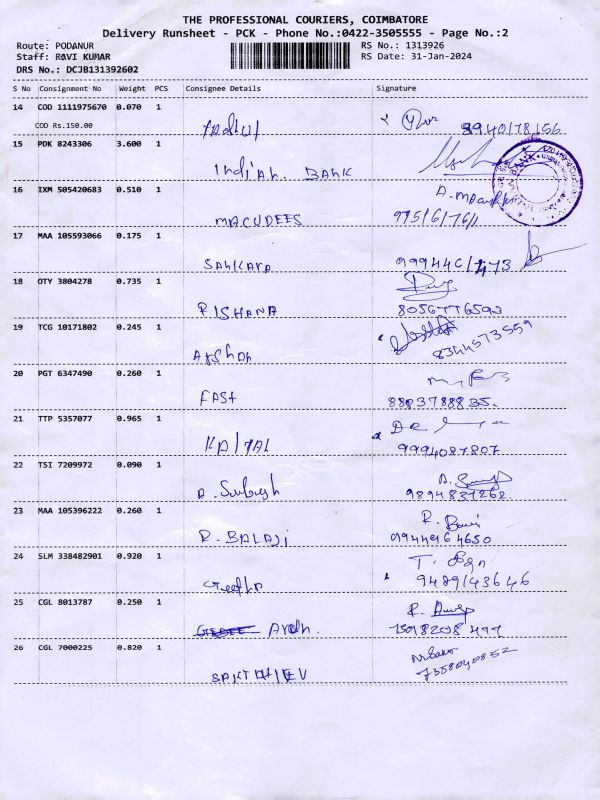 THE PROFESSIONAL COURIERS, COIMBATORE
Delivery Runsheet - PCK - Phone No.:0422-3505555 - Page No.:2
Route: PODANUR RS No.: 1313926
Staff: RAVI KUMAR RS Date: 31-Jan-2024
DRS No.: DCJB131392602
S No Consignment No Weight PCS Consignee Details Signature
14 COD 1111975670 0.070 1
COD Rs.150.00
15 PDK 8243306 3.600 1
Indian. BANK
BANK
16 IXM 505420683 0.510 1
MACUDEES
17 MAA 105593066 0.175 1
SANKARA
18 OTY 3804278 0.735 1
RISHANA
8056776592
19 TCG 10171802 0.245 1
8344573559
20 PGT 6347490 0.260 1
FAST
8883788835.
21 TTP 5357077 0.965 1
9994087807
22 TSI 7209972 0.090 1
9894831268
23 MAA 105396222 0.260 1
R. BALAJI
9944964650
24 SLM 338482901 0.920 1
Geetha
9489143646
25 CGL 8013787 0.250 1
26 CGL 7000225 0.820 1
7358040852